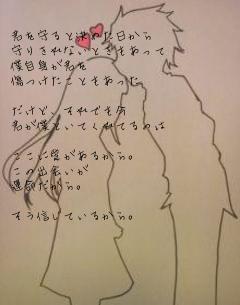 君を守ると決めた日から
守りきれないときもあって
僕自身が君を
傷つけたこともあった
だけど、それでも今
君が僕といてくれてるのは
ここに愛があるから。
この出会いが
運命だから。
そう信じているから。